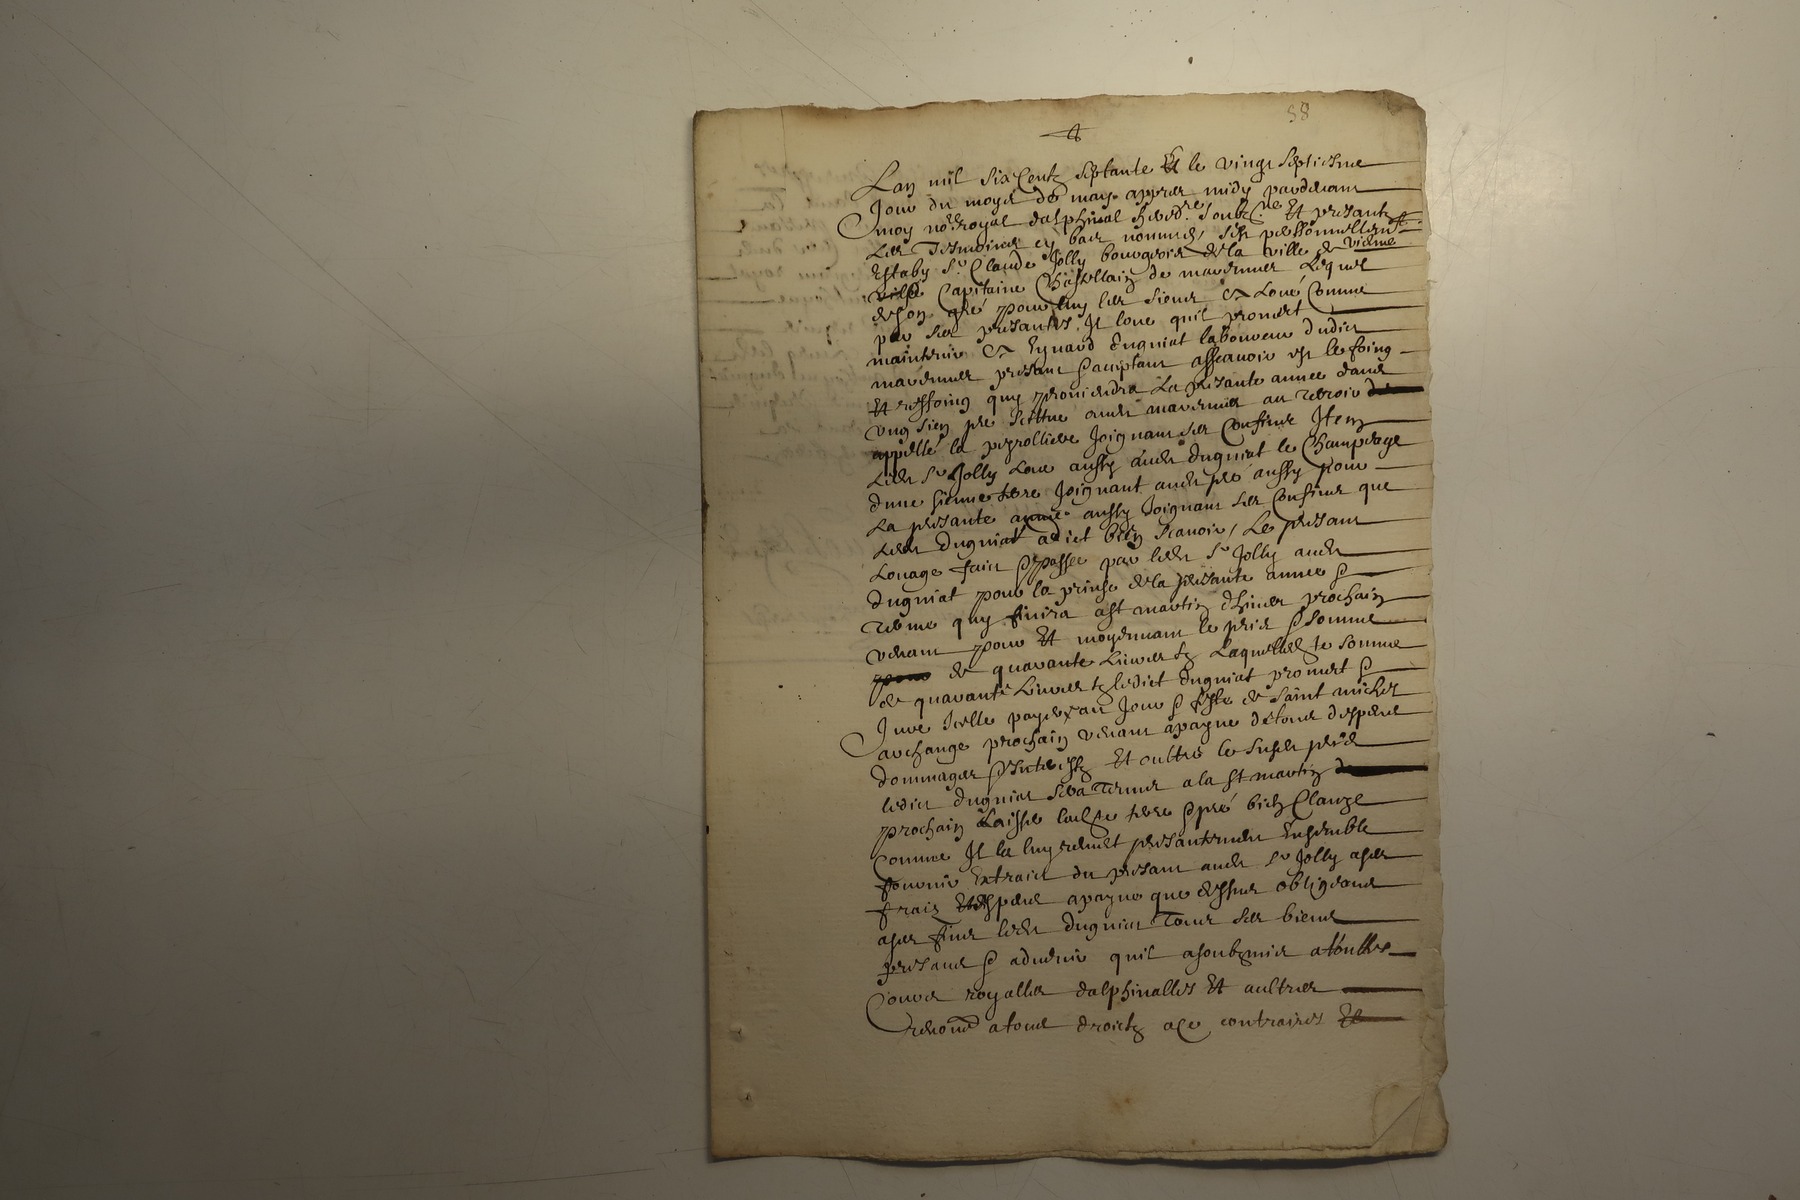 58
Lan mil six Centz septante Et le vingt septiesme
Jour du moys de may appres midy pardevant
moy no.re royal dalphinal hered.re soubz.ne Et presantz
Les Tesmoins cy bas nommés, s'est personnellem.t
Estably s.r Claude Jolly bourgeois de la ville de vienne
Capitaine Chastellain de mavennes Lequel
de son gré pour luy les siens & Loué Comme
par ses presantes Il loue quil promect
maintenir & Eynard dugniat laboureur dudict
mavennes presant & acceptant asscavoir est le foing
Et reffoing quy proviendra La presante annee dans
ung sien pré scittue aud mavennes au terroir
appellé la peyrolliere Joignant ses Confins Item
Led s.r Jolly Loue aussy aud dugniat le Champeage
dune sienne terre Joignant aud pré aussy pour
La presante annee aussy Joignant ses Confins que
Led dugniat a dict bien scavoir, Le presant
Louage faict & passé par led s.r Jolly aud
dugniat pour la prinse de la presante annee &
terme quy finira a st martin dhiver prochain
venant pour Et moyennant le prix & somme
de quarante Livres tz Laquelle te somme
de quarante Livres tz ledict dugniat promect &
Jure Icelle payer au Jour & feste de saint michel
archange prochain venant apayne de tous despens
dommages & Interestz Et oultre le susd prix
ledict dugniat sera tenus a la st martin
prochain Laisser lad te terre & pré bien Clauze
Comme Il la luy remet presantement Ensemble
fournir Extraict du presant aud s.r Jolly a ses
fraiz apayne que dessus obligeant
a ses fins led dugniat Tous ses biens
presans & advenir quil a soubzmis a touttes
Cours royalles dalphinalles Et aultres
renon.t a tous droictz a ce contraires